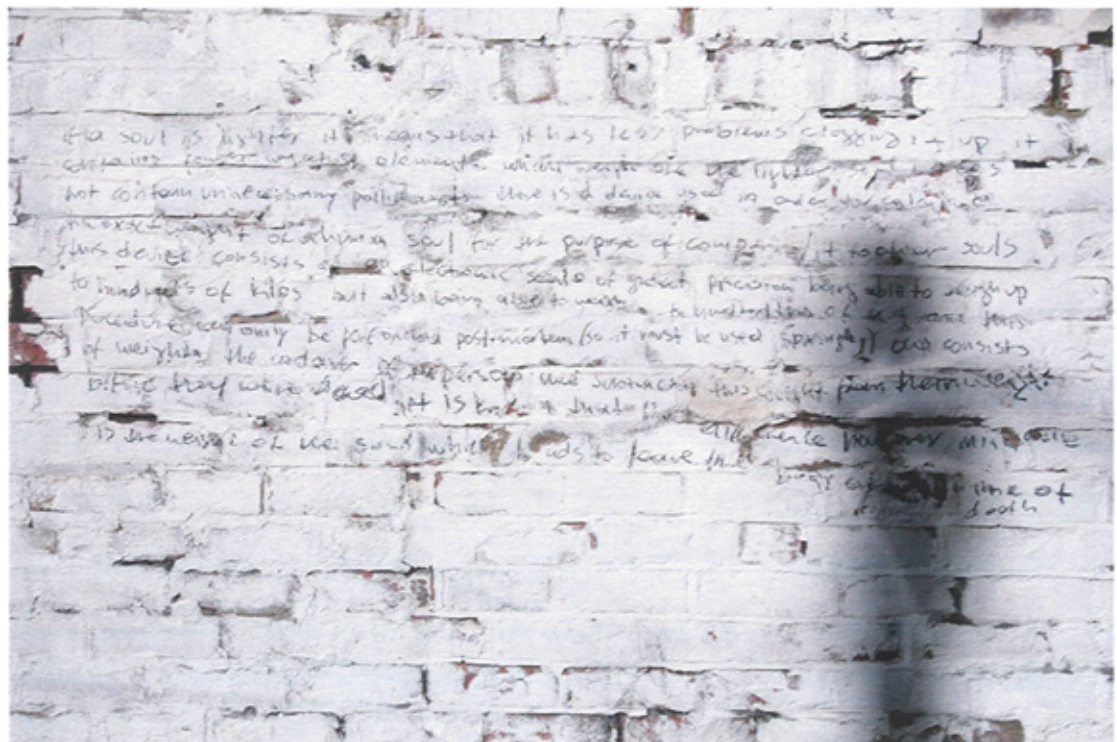 if a soul is lighter it means that it has less problems clogging it up it
contains fewer elements which weigh the lighter soul does
not contain unnecessary pollutants there is a device used in order to calculate
the exact weight of a human soul for the purpose of comparing it to other souls
this device consists of an electronic scale of great precision being able to weigh up
to hundreds of kilos but also being able to weigh to hundredths of a g and this
procedure can only be performed post-mortem (so it must be used sparingly) and consists
of weighing the cadaver of the person and subtracting this weight from their weight
before they were dead it is known that the
difference however miniscule
is the weight of the soul which tends to leave the
body at the time of
death